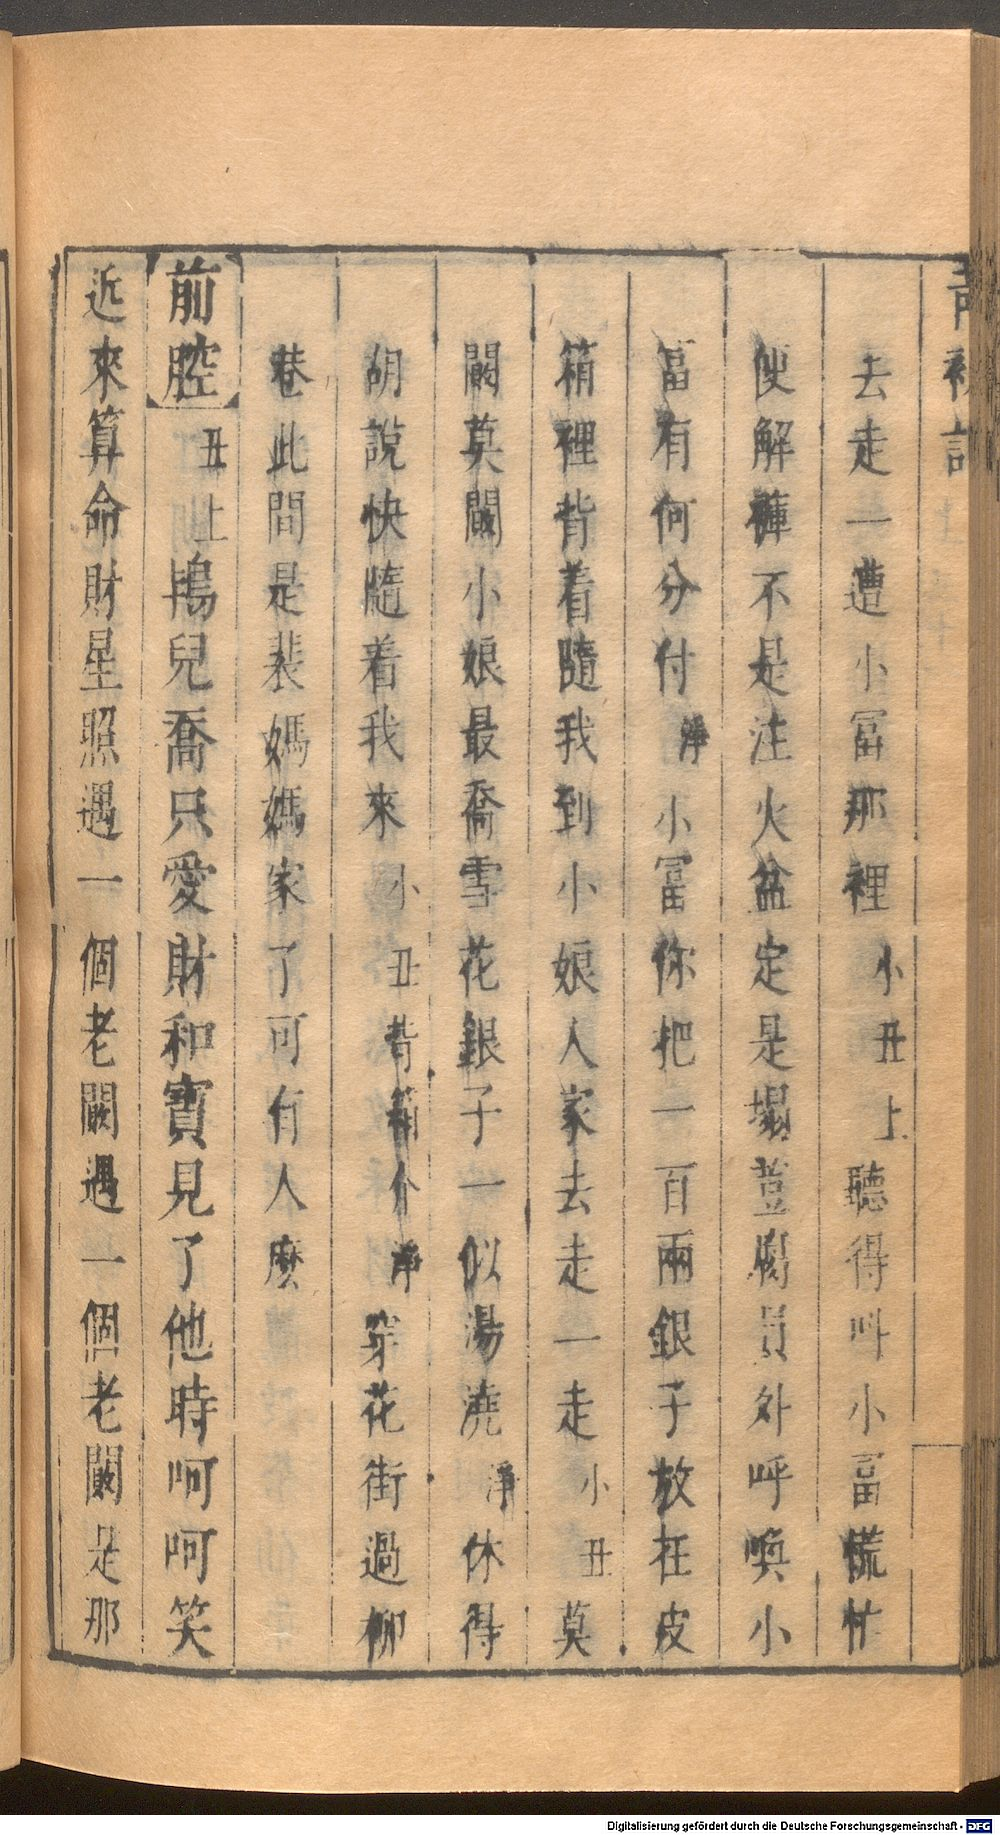 去走一遭小冨那裡小丑上聽得叫小冨慌忙
便解褲不是注火盆定是塌荳腐員外呼喚小
冨有何分付淨小冨你把一百兩銀子放在皮
箱裡背着隨我到小娘人家去走一走小丑莫
闞莫闞小娘最喬雪花銀子一似湯澆淨休得
胡說快隨着我來小丑背箱介淨穿花街過柳
巷此間是裴媽媽家了可有人麽
前腔丑上鴇兒喬只愛財和寶見了他時呵呵笑
近來算命財星照遇一個老闞遇一個老闞是那
Digitalisierung gefördert durch die Deutsche Forschungsgemeinschaft - DFG